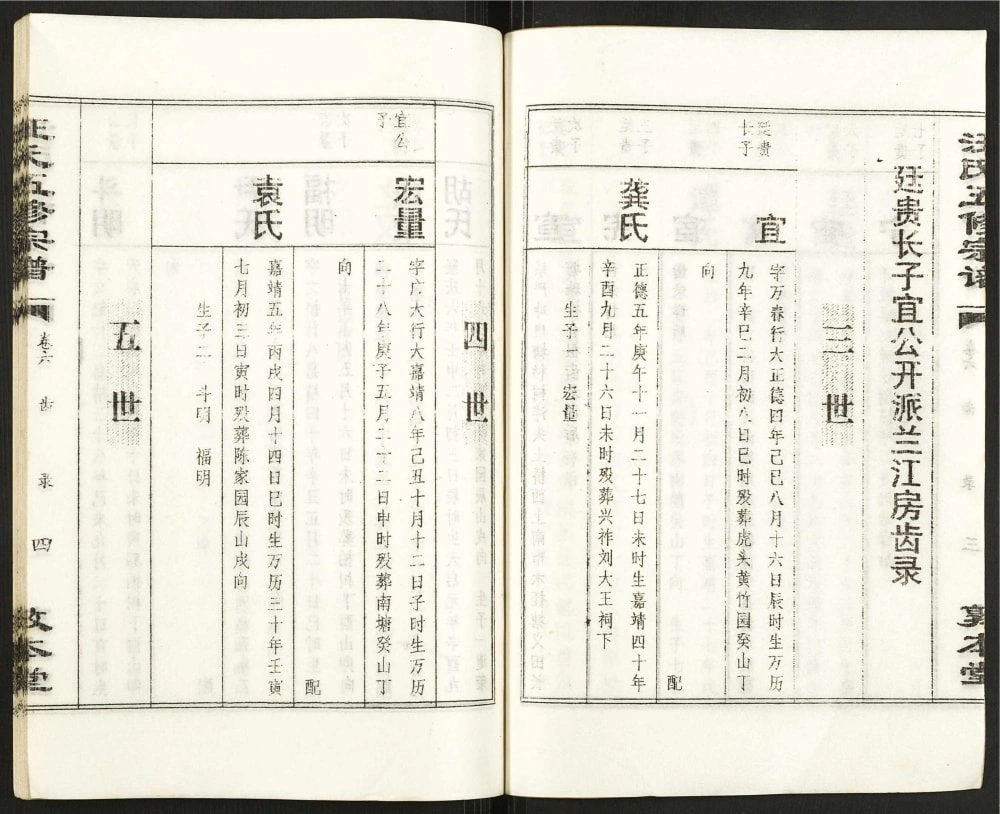 汪氏五修宗谱
卷六
齿
录
三
敦本堂
廷贵长子宜公开派兰江房齿录
三世
廷贵
长子
宜
字万春行大正德四年己巳八月十六日辰时生万历
九年辛巳二月初六日巳时殁葬虎头黄竹园癸山丁
向
配
龚氏
正德五年庚午十一月二十七日未时生嘉靖四十年
辛酉九月二十六日未时殁葬兴祚刘大王祠下
生子一 宏量
四世
宜公
子
宏量
字广大行大嘉靖八年己丑十月十二日子时生万历
二十八年庚子五月二十二日申时殁葬南塘癸山丁
向
配
袁氏
嘉靖五年丙戌四月十四日巳时生万历三十年壬寅
七月初三日寅时殁葬陈家园辰山戌向
生子二 斗明 福明
五世
汪氏五修宗谱
卷六
齿
录
四
敦本堂